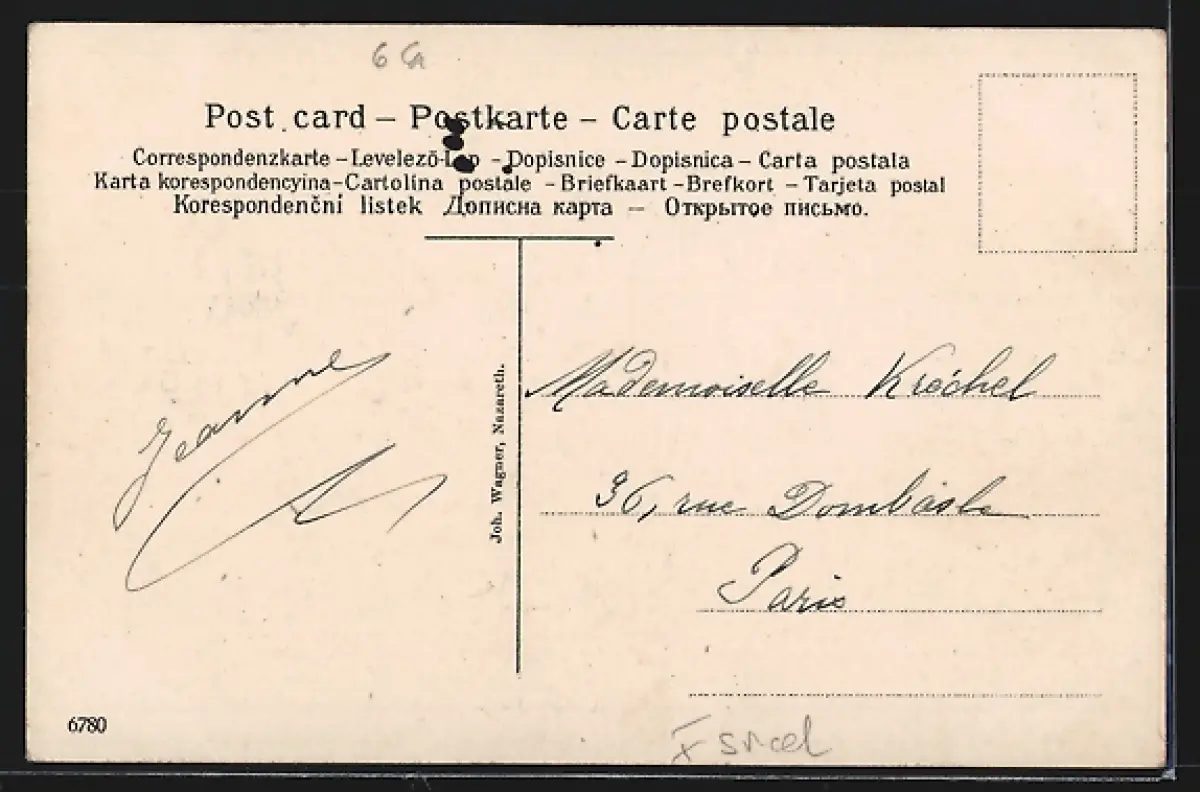 6
Post card – Postkarte – Carte postale
Correspondenzkarte – Levelező-Lap – Dopisnice – Dopisnica – Carta postala
Karta korespondencyina – Cartolina postale – Briefkaart – Brefkort – Tarjeta postal
Korespondenčni listek Дописна карта – Открытое письмо.
Jeanne
Joh. Wagner, Nazareth.
Mademoiselle Kréchel
36, rue Dombasle
Paris
6780
Israel